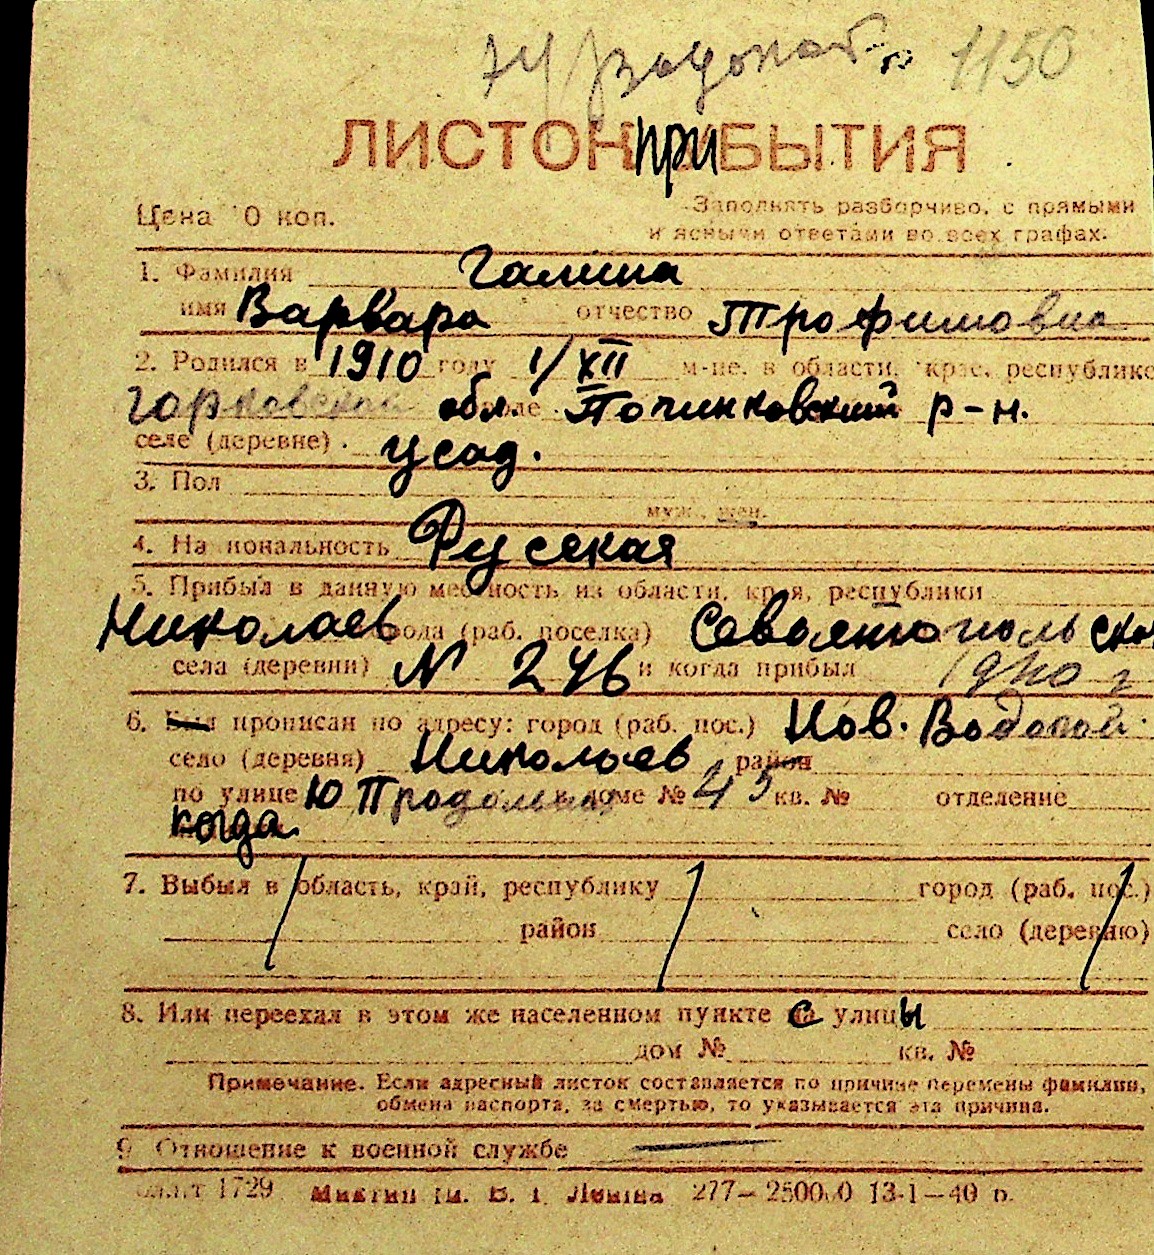 Н/Водопой 1150
ЛИСТОК ПРИБЫТИЯ
Цена 10 коп. Заполнять разборчиво, с прямыми
и ясными ответами во всех графах.
1. Фамилия Галина
имя Варвара отчество Трофимовна
2. Родился в 1910 году 1/XII м-це, в области, крае, республике
Горьковской обл. Починковский р-н.
селе (деревне) Усад.
3. Пол
муж., жен.
4. Национальность Русская
5. Прибыл в данную местность из области, края, республики
Николаев города (раб. поселка) Севастополь ска
села (деревни) N 246 и когда прибыл
6. Был прописан по адресу: город (раб. пос.) Нов. Водопой
село (деревня) Николаев район
по улице Ю Продольная в доме № 45 кв. № отделение
когда
7. Выбыл в область, край, республику город (раб. пос.)
район село (деревню)
8. Или переехал в этом же населенном пункте с улицы
дом № кв. №
Примечание. Если адресный листок составляется по причине перемены фамилии,
обмена паспорта, за смертью, то указывается эта причина.
9. Отношение к военной службе
1729 им. В. И. Ленина 277—250000 13-I—40 р.